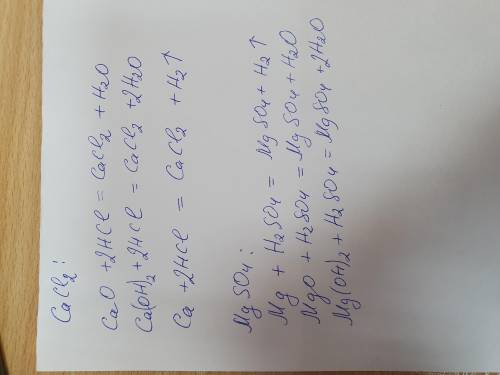 CaCl₂:
CaO + 2HCl = CaCl₂ + H₂O
Ca(OH)₂ + 2HCl = CaCl₂ + 2H₂O
Ca + 2HCl = CaCl₂ + H₂↑
MgSO₄:
Mg + H₂SO₄ = MgSO₄ + H₂↑
MgO + H₂SO₄ = MgSO₄ + H₂O
Mg(OH)₂ + H₂SO₄ = MgSO₄ + 2H₂O